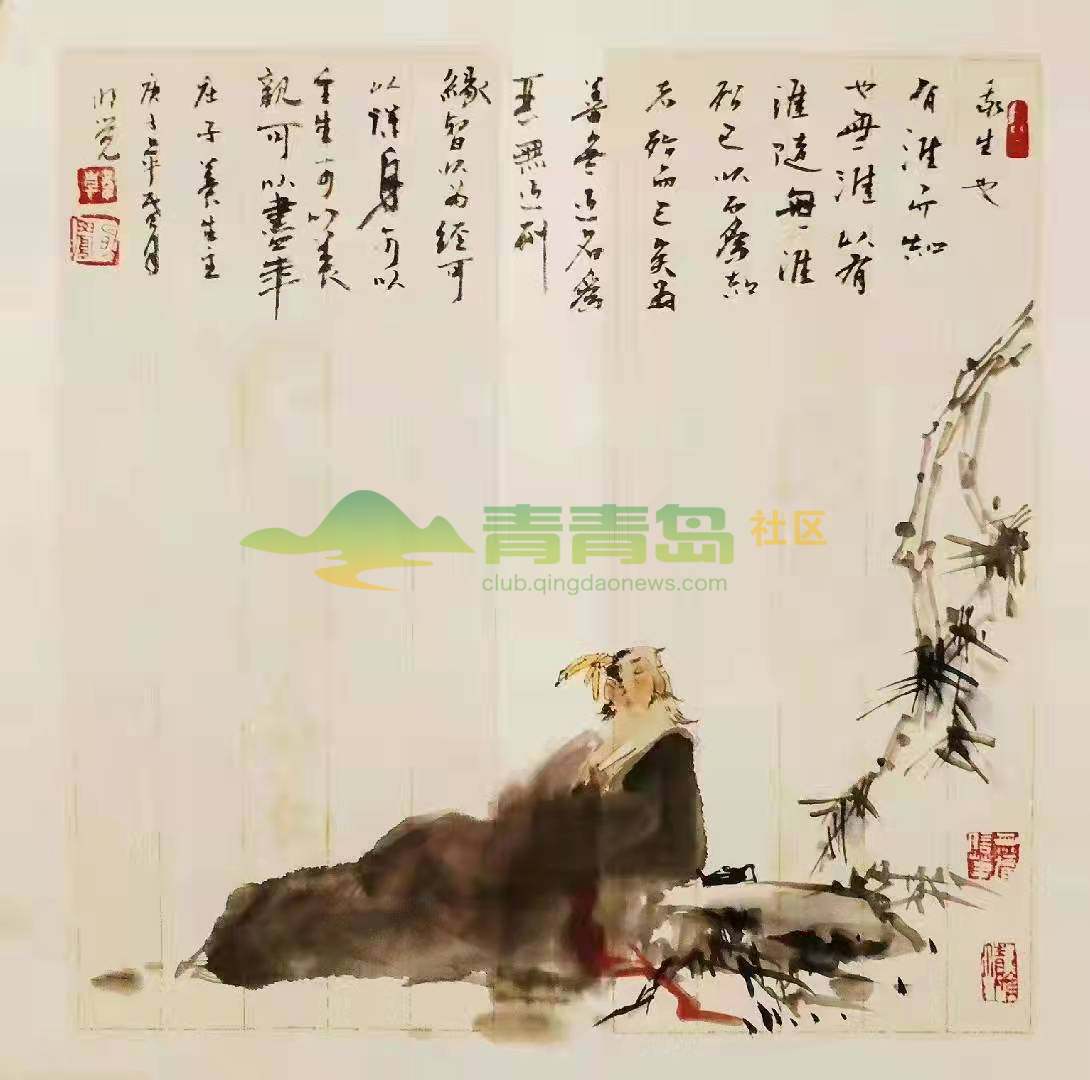 吾生也
有涯而知
也無涯以有
涯隨無涯
殆已以而為知
者殆而已矣為
善無近名為
惡無近刑
緣督以为經可
以保身可以
全生可以养
親可以盡年
庄子养生主
庚子年月
觉
青青岛社区
club.qingdaonews.com